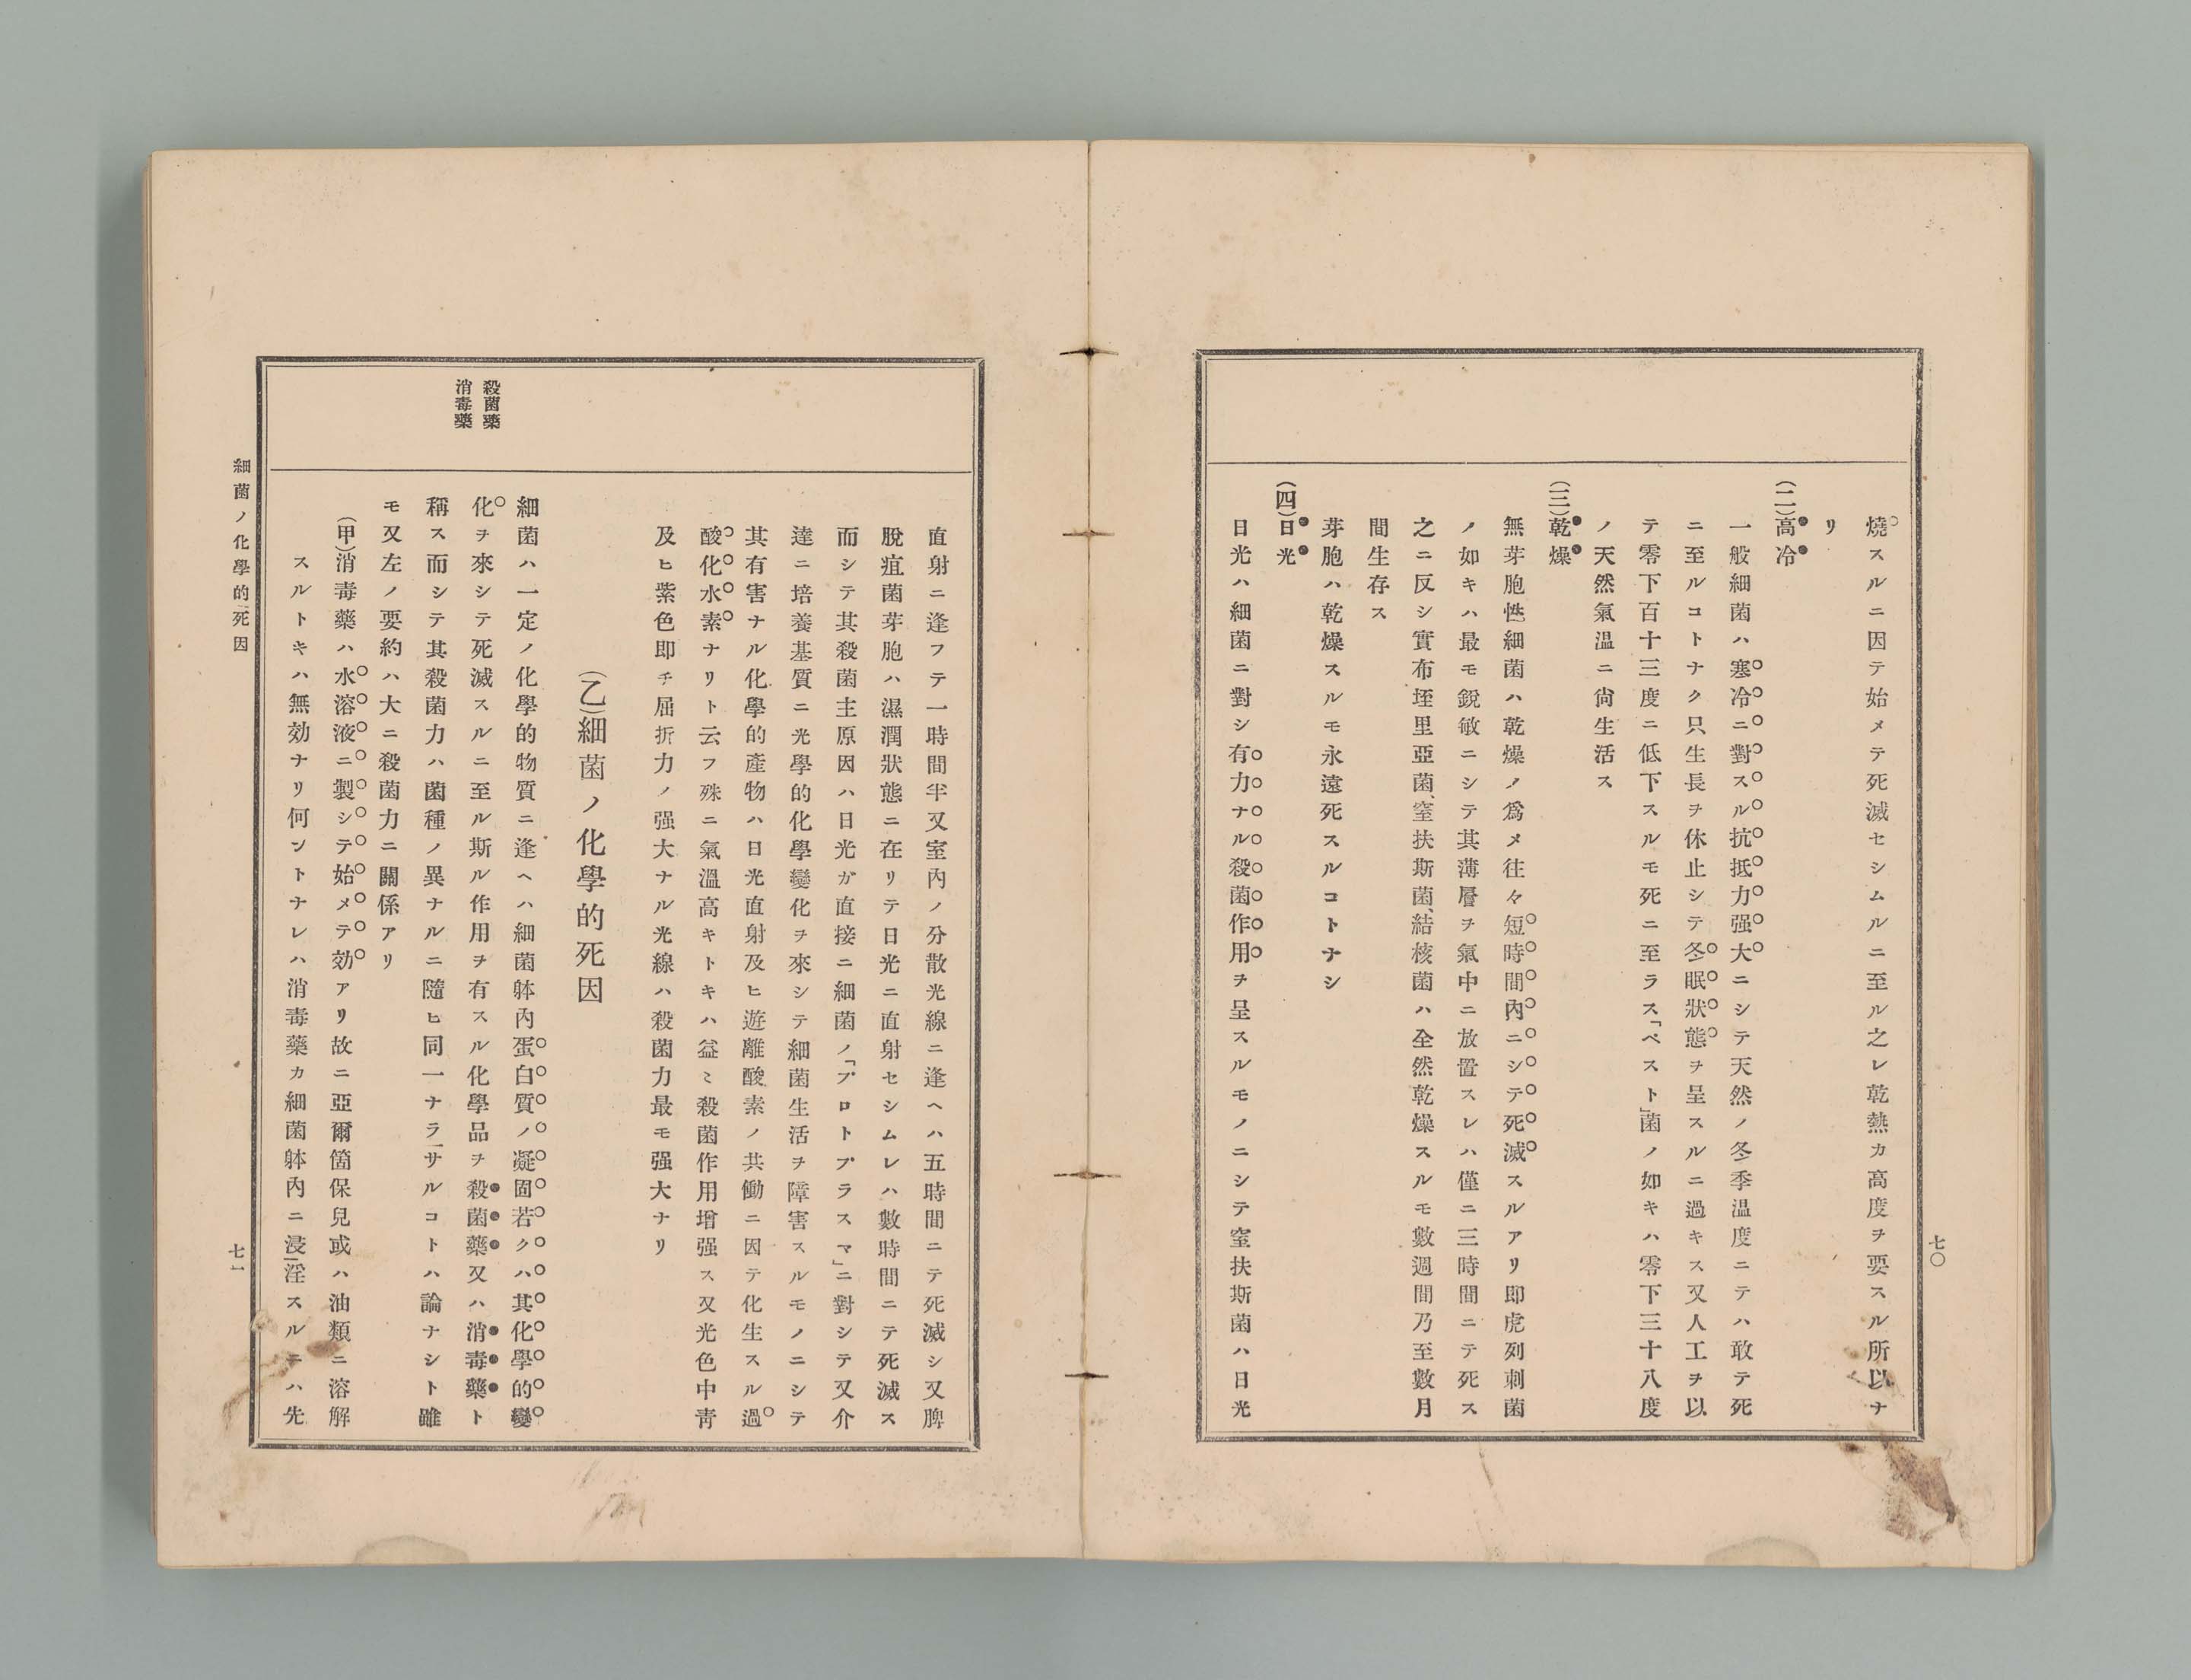 燒スルニ因テ始メテ死滅セシムルニ至ル之レ乾熱カ高度ヲ要スル所以ナ
リ
(二)高冷
一般細菌ハ寒冷ニ對スル抗抵力强大ニシテ天然ノ冬季温度ニテハ敢テ死
ニ至ルコトナク只生長ヲ休止シテ冬眠狀態ヲ呈スルニ過キス又人工ヲ以
テ零下百十三度ニ低下スルモ死ニ至ラス「ペスト」菌ノ如キハ零下三十八度
ノ天然氣温ニ尙生活ス
(三)乾燥
無芽胞性細菌ハ乾燥ノ爲メ往々短時間內ニシテ死滅スルアリ即虎列刺菌
ノ如キハ最モ銳敏ニシテ其薄層ヲ氣中ニ放置スレハ僅ニ三時間ニテ死ス
之ニ反シ實布垤里亞菌、窒扶斯菌、結核菌ハ全然乾燥スルモ數週間乃至數月
間生存ス
芽胞ハ乾燥スルモ永遠死スルコトナシ
(四)日光
日光ハ細菌ニ對シ有力ナル殺菌作用ヲ呈スルモノニシテ窒扶斯菌ハ日光
七〇
直射ニ逢フテ一時間半又室內ノ分散光線ニ逢ヘハ五時間ニテ死滅シ又脾
脫疽菌芽胞ハ濕潤狀態ニ在リテ日光ニ直射セシムレハ數時間ニテ死滅ス
而シテ其殺菌主原因ハ日光ガ直接ニ細菌ノ「プロトプラスマ」ニ對シテ又介
達ニ培養基質ニ光學的化學變化ヲ來シテ細菌生活ヲ障害スルモノニシテ
其有害ナル化學的產物ハ日光直射及ヒ遊離酸素ノ共働ニ因テ化生スル過
酸化水素ナリト云フ殊ニ氣溫高キトキハ益ミ殺菌作用增强ス又光色中靑
及ヒ紫色即チ屈折力ノ强大ナル光線ハ殺菌力最モ强大ナリ
(乙)細菌ノ化學的死因
細菌ハ一定ノ化學的物質ニ逢ヘハ細菌躰內蛋白質ノ凝固若クハ其化學的變
化ヲ來シテ死滅スルニ至ル斯ル作用ヲ有スル化學品ヲ殺菌藥又ハ消毒藥ト
稱ス而シテ其殺菌力ハ菌種ノ異ナルニ隨ヒ同一ナラサルコトハ論ナシト雖
モ又左ノ要約ハ大ニ殺菌力ニ關係アリ
(甲)消毒藥ハ水溶液ニ製シテ始メテ効アリ故ニ亞爾箇保兒或ハ油類ニ溶解
スルトキハ無効ナリ何ントナレハ消毒藥カ細菌躰內ニ浸淫スルニハ先
殺菌藥
消毒藥
細菌ノ化學的死因
七一